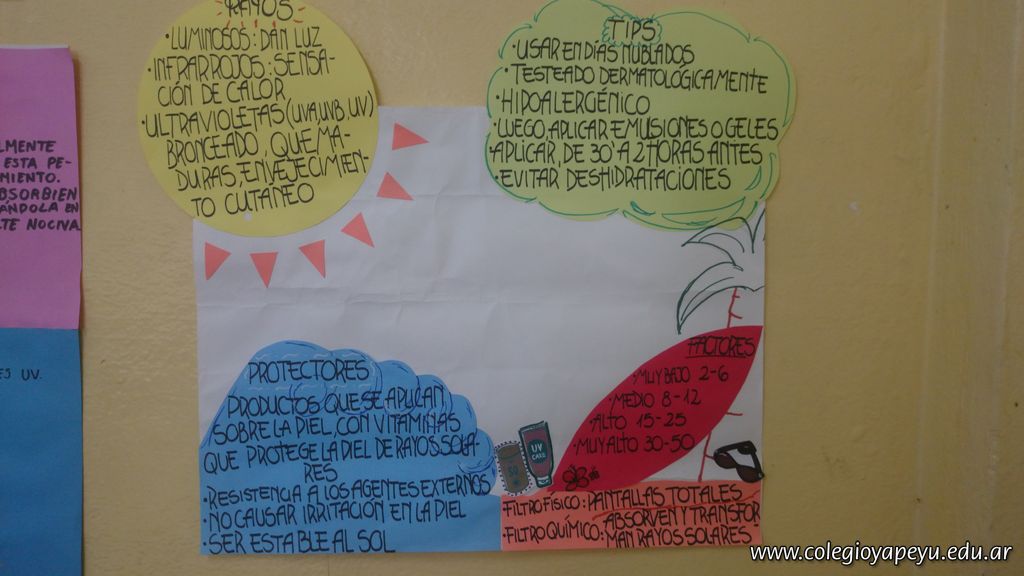 RAYOS
• LUMINOSOS: DAN LUZ
• INFRARROJOS: SENSA-
CIÓN DE CALOR
• ULTRAVIOLETAS (UVA, UVB, UV)
BRONCEADO, QUEMA-
DURAS, ENVEJECIMIEN-
TO CUTANEO
TIPS
• USAR EN DÍAS NUBLADOS
• TESTEADO DERMATOLÓGICAMENTE
• HIPOALERGÉNICO
• LUEGO, APLICAR EMUSIONES O GELES
• APLICAR, DE 30' A 2 HORAS ANTES
• EVITAR DESHIDRATACIONES
LMENTE
ESTA PE-
MIENTO.
BSORBIEN
ÁNDOLA EN
TE NOCIVA
ES UV.
PROTECTORES
PRODUCTOS QUE SE APLICAN
SOBRE LA PIEL, CON VITAMINAS
QUE PROTEGE LA PIEL DE RAYOS SOLA-
RES
• RESISTENCIA A LOS AGENTES EXTERNOS
• NO CAUSAR IRRITACION EN LA PIEL
• SER ESTABLE AL SOL
FACTORES
• MUY BAJO 2-6
• MEDIO 8-12
• ALTO 15-25
• MUY ALTO 30-50
UV
CARE
FILTRO FISICO: PANTALLAS TOTALES
FILTRO QUÍMICO: ABSORVEN Y TRANSFOR
MAN RAYOS SOLARES
www.colegioyapeyu.edu.ar